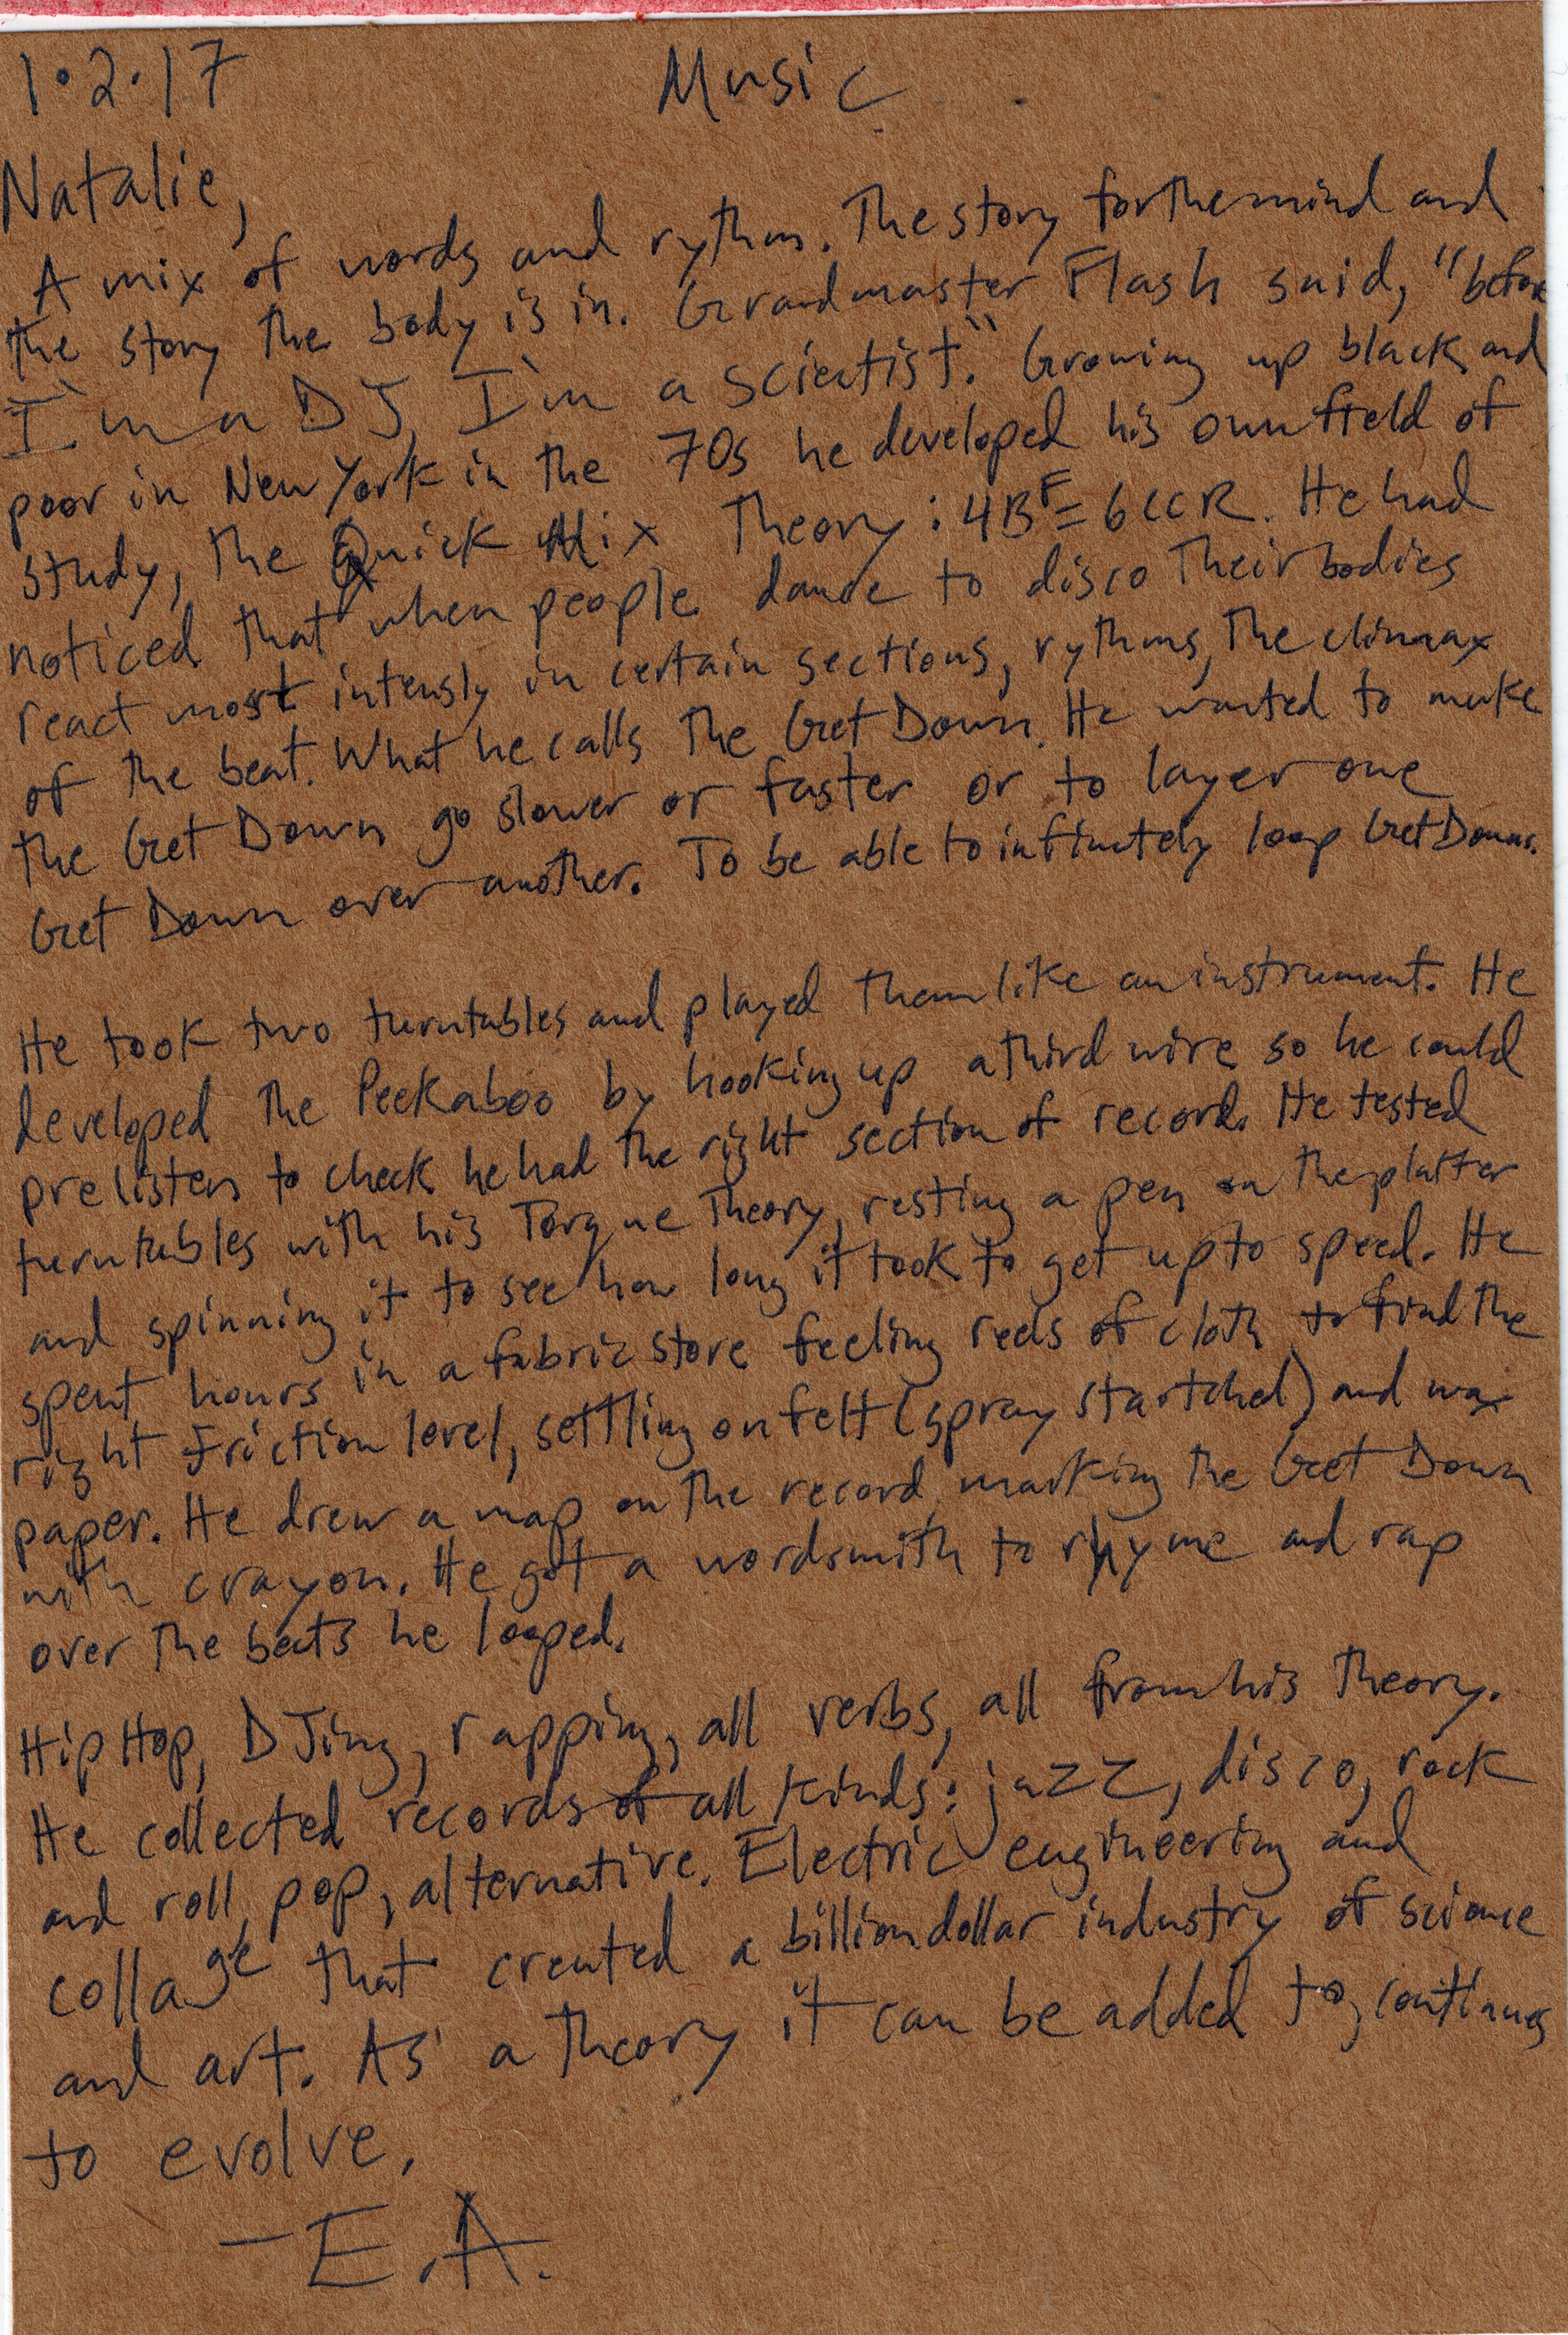 1•2•17 Music
Natalie,
A mix of words and rythm. The story for the mind and
the story the body is in. Grandmaster Flash said, "before
I'm a DJ, I'm a scientist." Growing up black and
poor in New York in the 70s he developed his own field of
study, the Quick Mix Theory: 4BF = 6CCR. He had
noticed that when people dance to disco their bodies
react most intensly in certain sections, rythms, the climax
of the beat. What he calls the Get Down. He wanted to make
the Get Down go slower or faster or to layer one
Get Down over another. To be able to infinitely loop Get Downs.
He took two turntables and played them like an instrument. He
developed the Peekaboo by hooking up a third wire so he could
prelisten to check he had the right section of record. He tested
turntables with his Torque Theory, resting a pen on the platter
and spinning it to see how long it took to get up to speed. He
spent hours in a fabric store feeling reels of cloth to find the
right friction level, settling on felt (spray startched) and wax
paper. He drew a map on the record, marking the Get Down
with crayon. He got a wordsmith to rhyme and rap
over the beats he looped.
Hip Hop, DJing, rapping, all verbs, all from his theory.
He collected records of all kinds: jazz, disco, rock
and roll, pop, alternative. Electric engineering and
collage that created a billion dollar industry of science
and art. As a theory it can be added to, continues
to evolve.
—E.A.